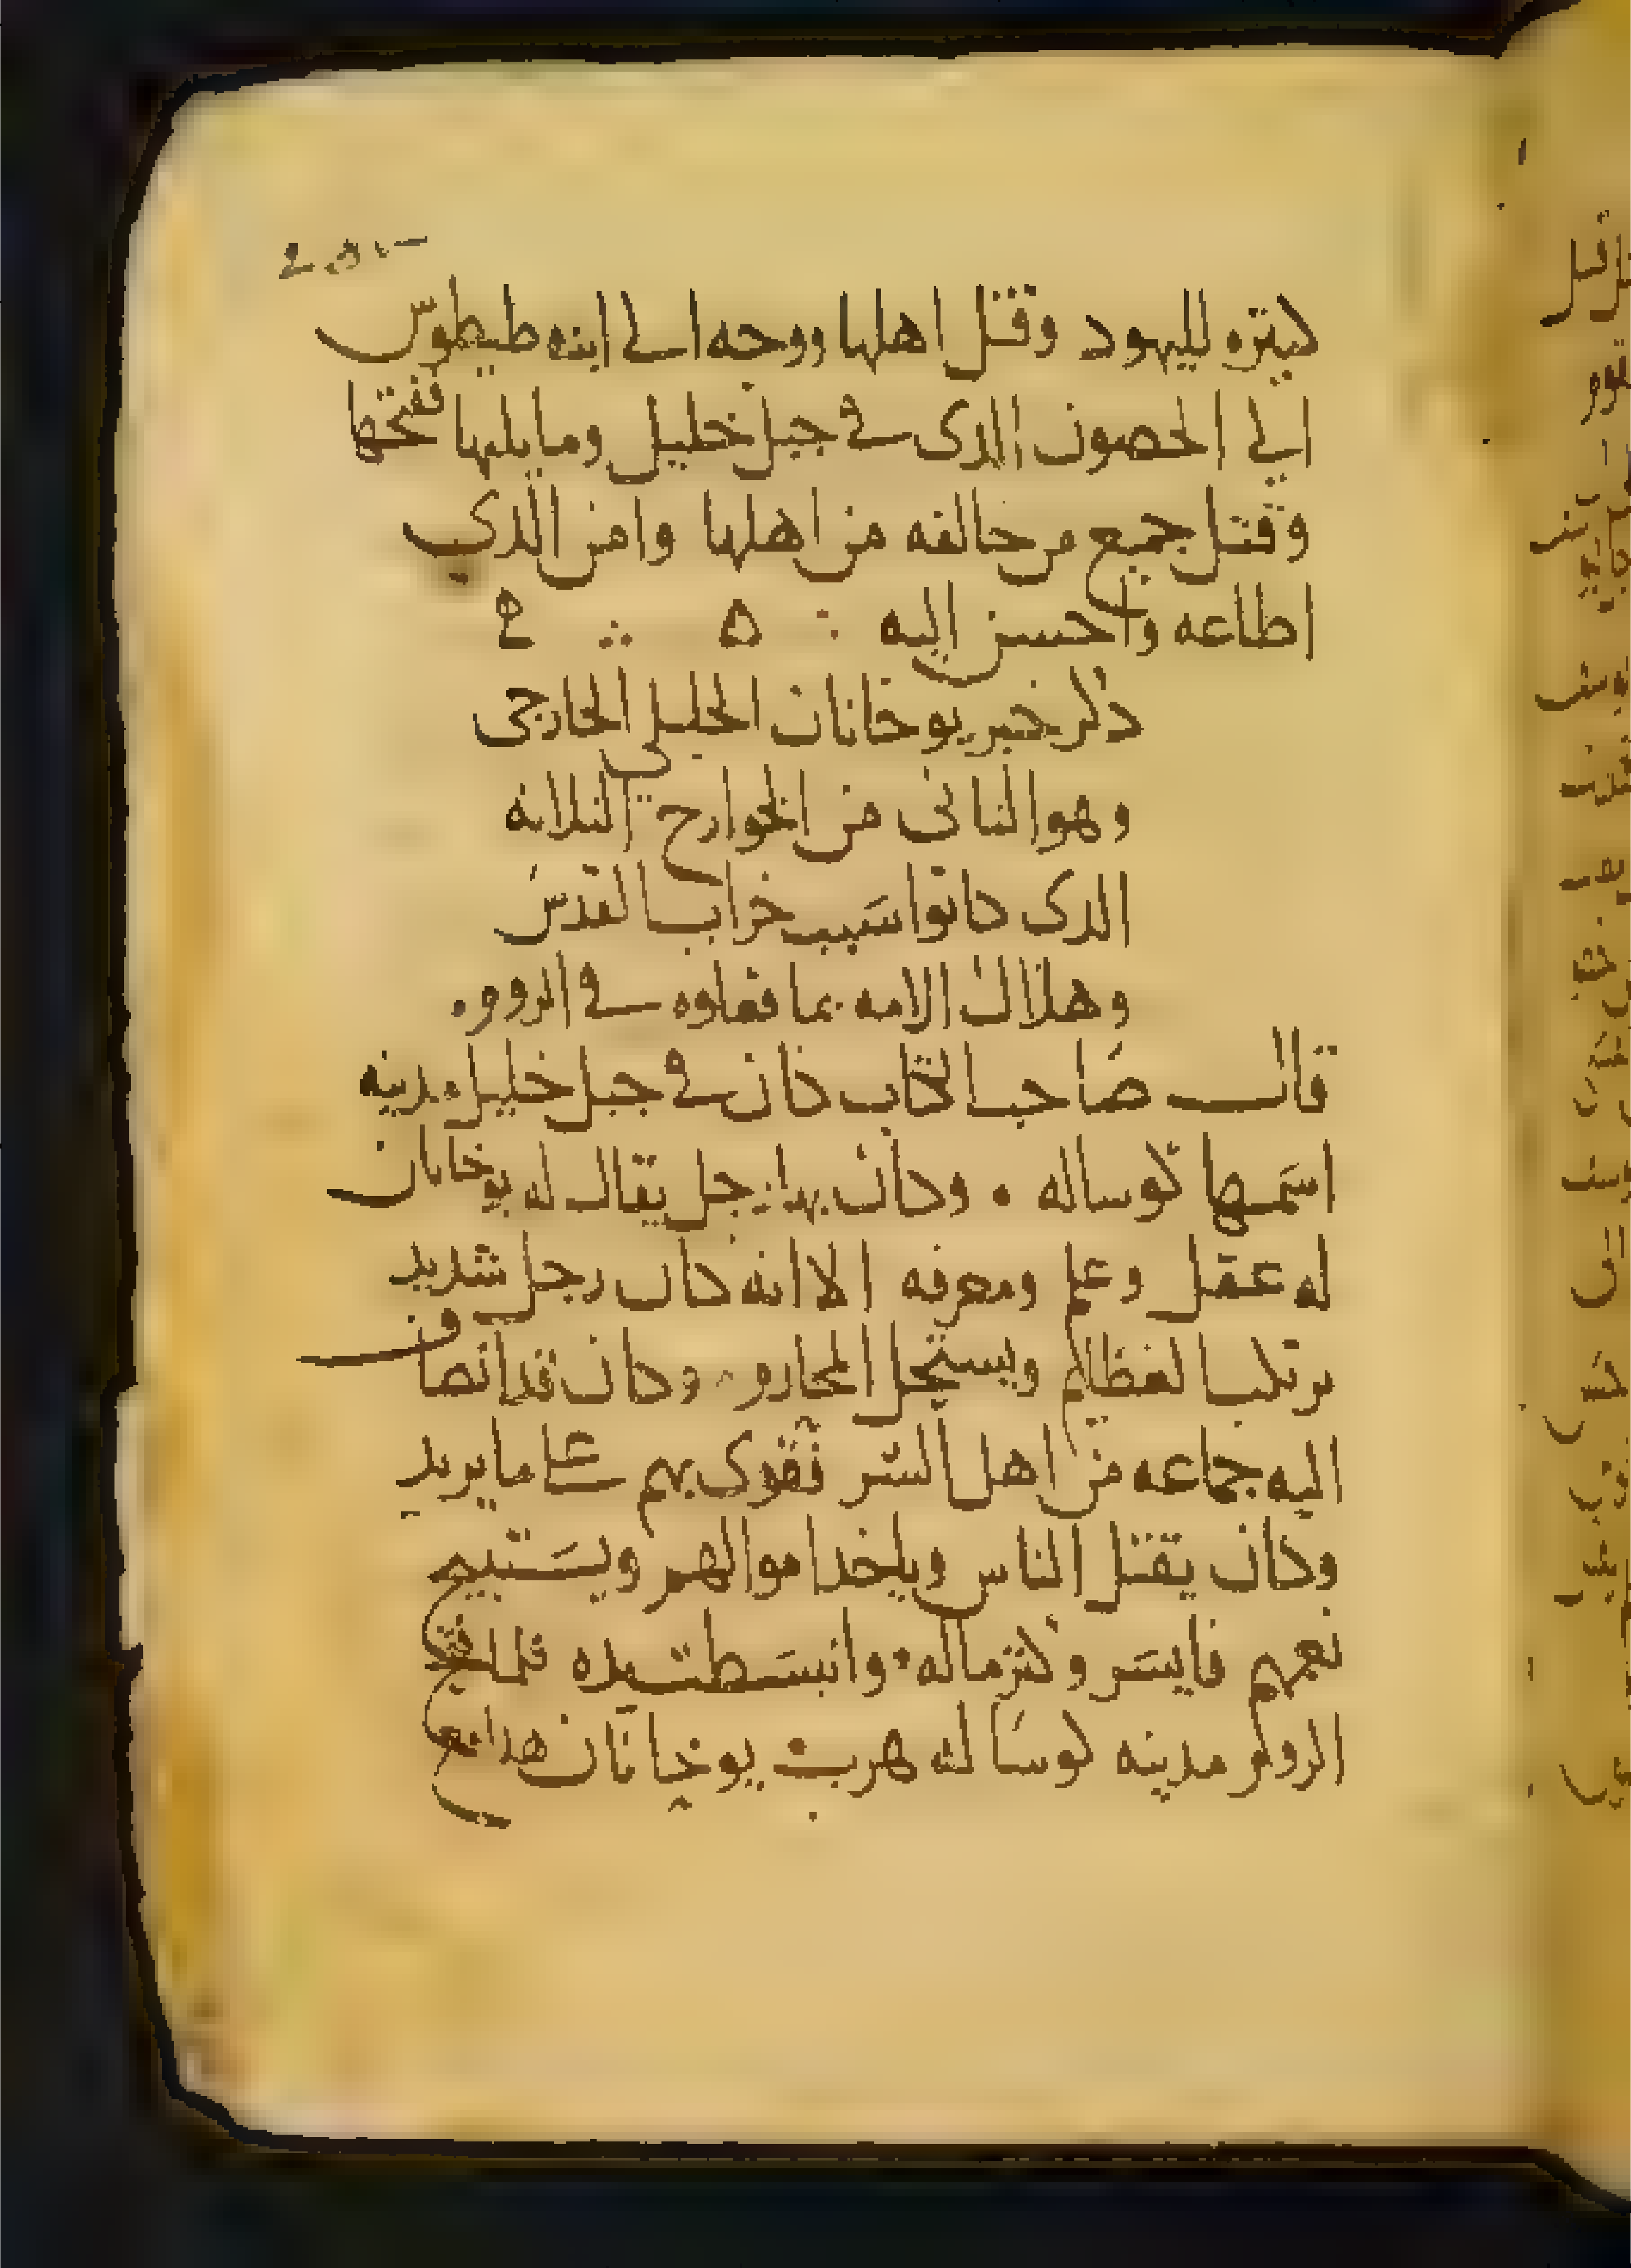 كبيره لليهود وقتل اهلها ووجه الى ابنه طيطوس
الي الحصون الذى فى جبل خليل وما يليها ففتحها
وقتل جميع من خالفه من اهلها وامن الذي
اطاعه واحسن اليه
ذكر خبر يوخانان الخليلي الخارجى
وهو الثاني من الخوارج الثلاثه
الذى كانوا سبب خراب القدس
وهلاك الامه بما فعلوه فى
قال صاحب الكتاب كان فى جبل خليل مدينه
اسمها كوساله وكان بها رجل يقال له يوخانان
له عقل وعلم ومعرفه الا انه كان رجل شديد
يرتكب العظايم ويستحل المحارم وكان قد انضاف
اليه جماعه من اهل الشر فقوى بهم على ما يريد
وكان يقتل الناس وياخذ اموالهم ويستبيح
نعمهم فايسر وكثر ماله وانبسطت يده فلما فتح
الروم مدينه كوساله هرب يوخانان هدا مع